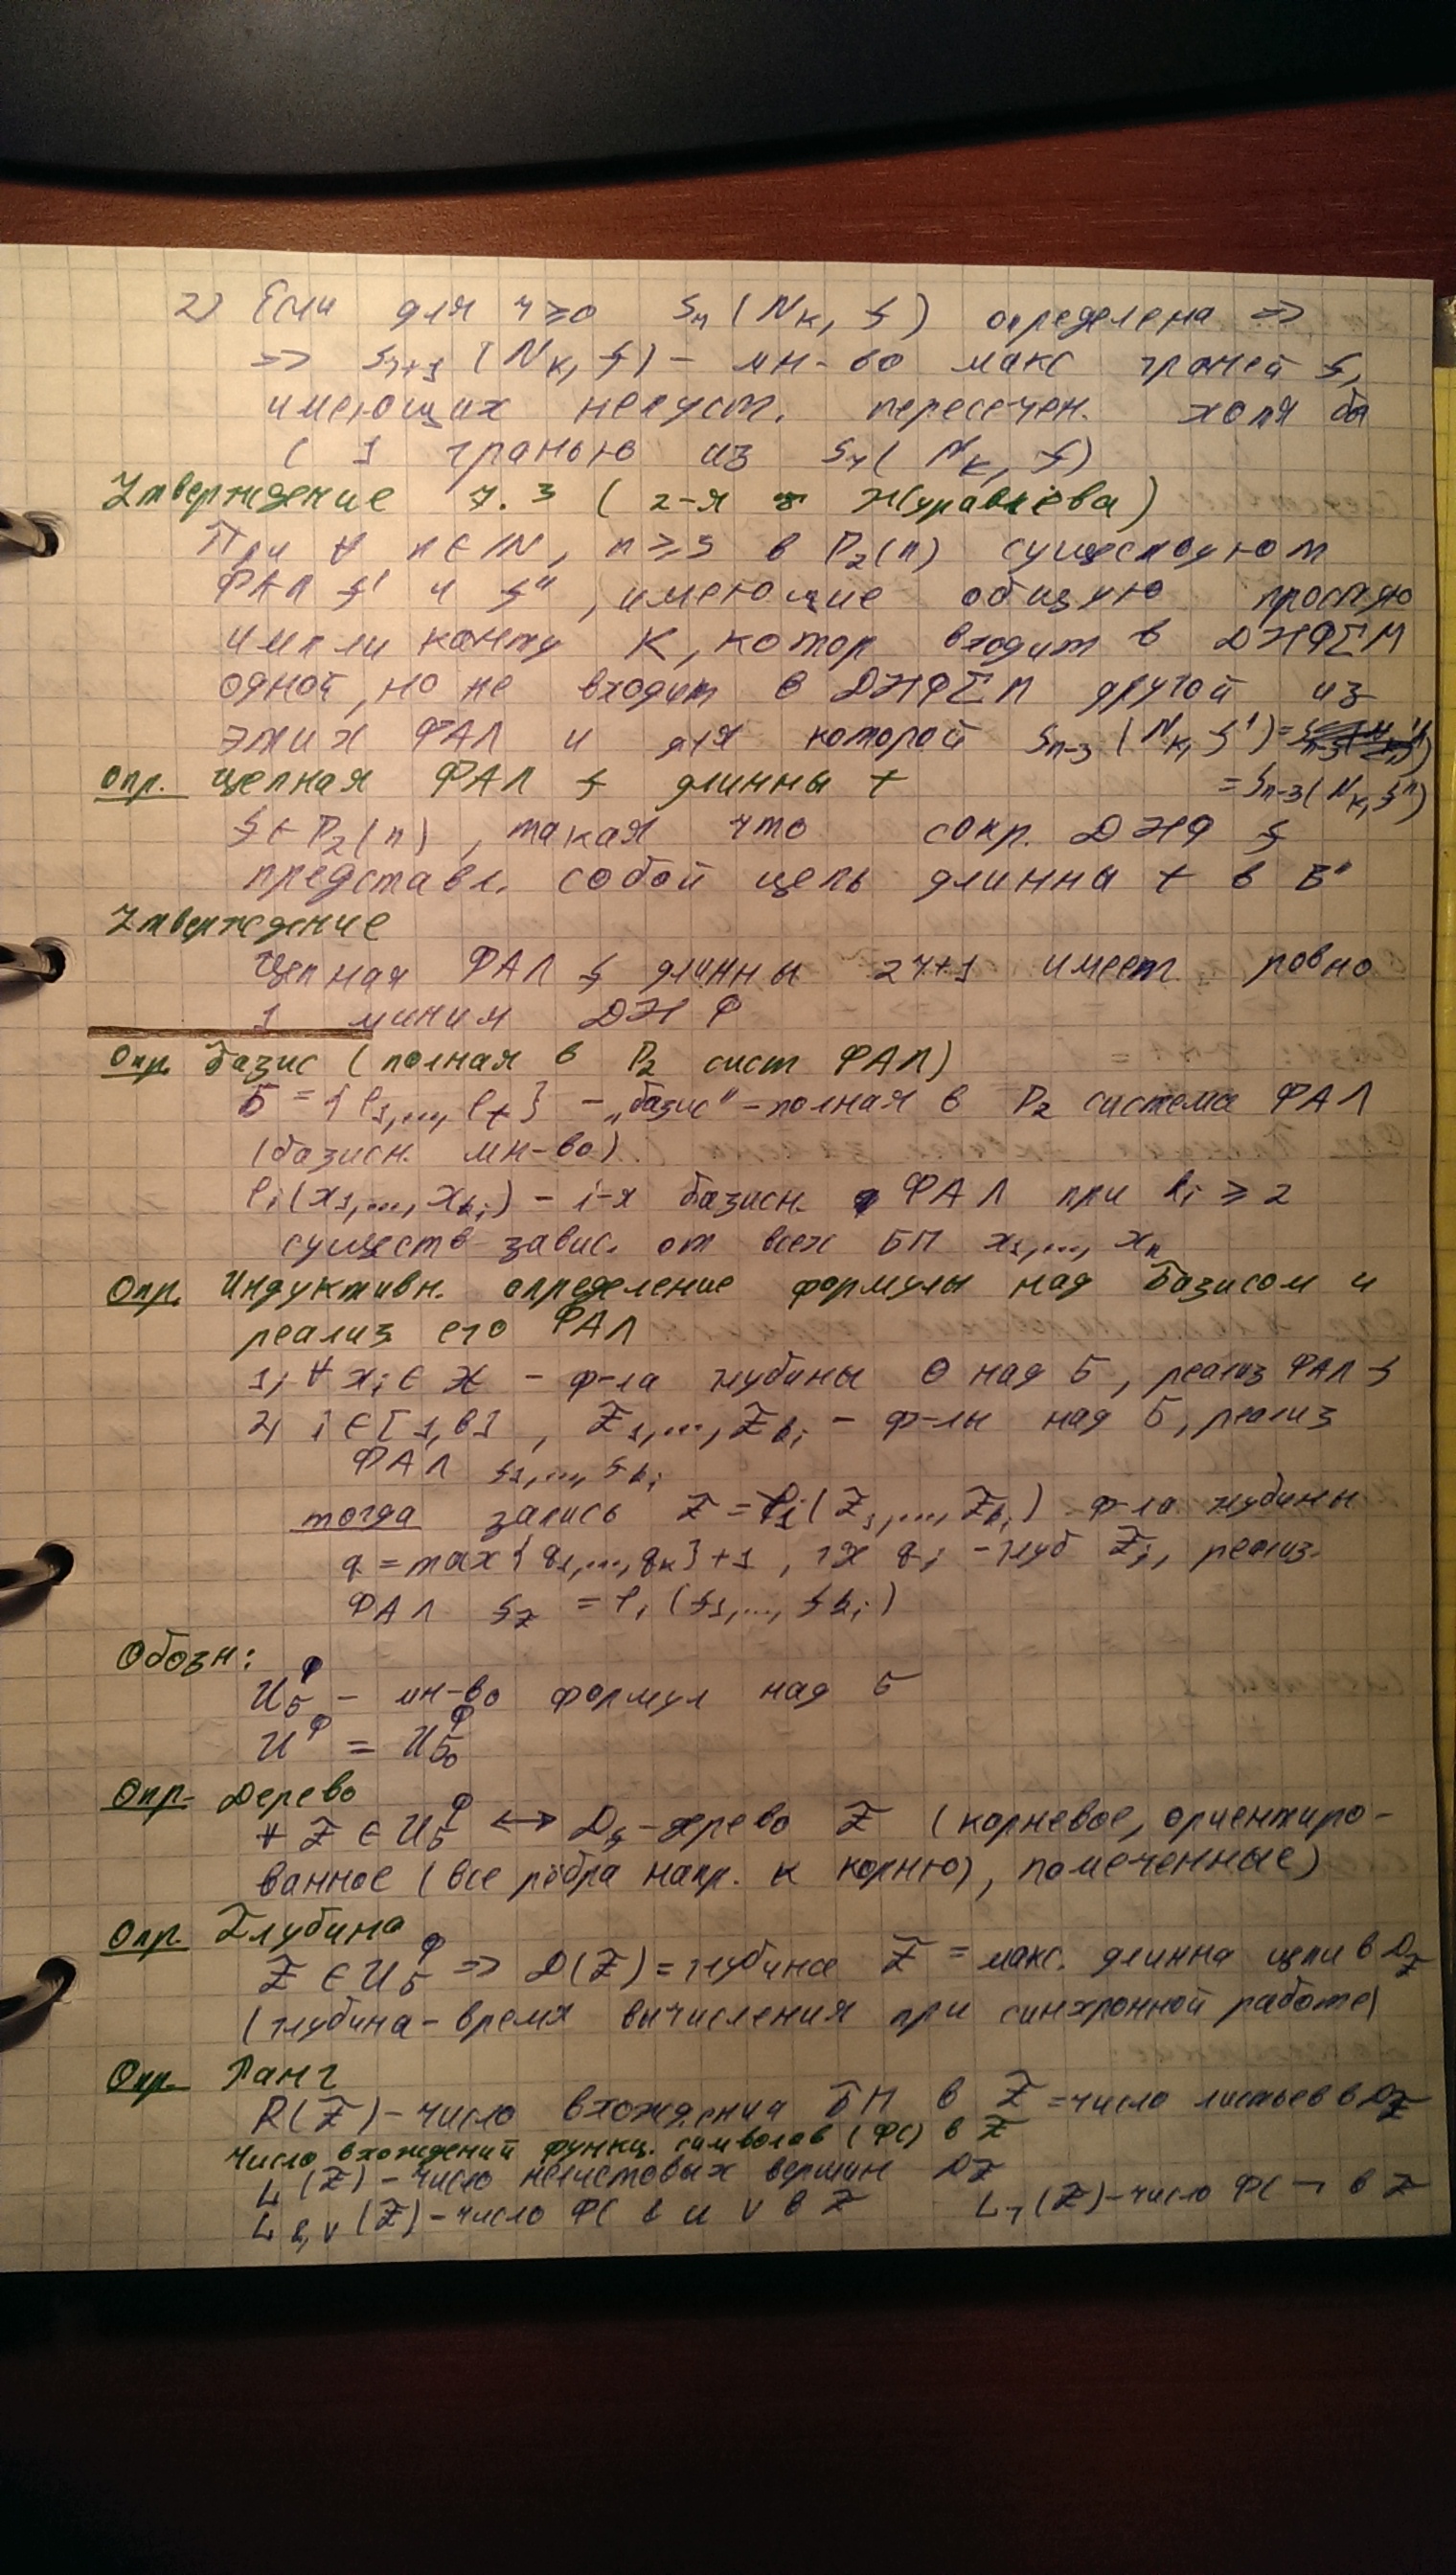 2) Если для r ≥ 0 S_r (N_K, f) определена =>
=> S_{r+1} (N_K, f) – мн-во макс граней f,
имеющих непуст. пересечен. хотя бы
с 1 гранью из S_r (N_K, f)
Утверждение 7.3 (2-я т Журавлёва)
При ∀ n ∈ IN, n ≥ 3 в P₂(n) существуют
ФАЛ f' и f'', имеющие общую простую
импли конту K, котор входит в ДНФΣМ
одной, но не входит в ДНФΣМ другой из
этих ФАЛ и для которой S_{n-3} (N_K, f') =
= S_{n-3} (N_K, f'')
Опр. Цепная ФАЛ f длинны t
f ∈ P₂(n), такая что сокр. ДНФ f
представл. собой цепь длинны t в Bⁿ
Утверждение
Цепная ФАЛ f длинны 2r+1 имеет ровно
1 миним ДНФ
Опр. Базис (полная в P₂ сист ФАЛ)
Б = {φ₁,..., φ_t} – „базис" – полная в P₂ система ФАЛ
(базисн. мн-во)
φᵢ(x₁,..., x_{kᵢ}) – i-я базисн. ФАЛ при kᵢ ≥ 2
существ завис. от всех БП x₁,..., xₙ
Опр. Индуктивн. определение формулы над Базисом и
реализ его ФАЛ
1) ∀ xᵢ ∈ X – ф-ла глубины 0 над Б, реализ ФАЛ f
2) i ∈ [1, b], F₁,..., F_{kᵢ} – ф-лы над Б, реализ
ФАЛ f₁,..., f_{kᵢ}
тогда запись F = φᵢ(F₁,..., F_{kᵢ}) ф-ла глубины
q = max{q₁,..., q_k} + 1, гд qᵢ – глуб Fᵢ, реализ.
ФАЛ f_F = φᵢ (f₁,..., f_{kᵢ})
Обозн:
U_Б^Ф – мн-во формул над Б
U^Ф = U_{Б₀}^Ф
Опр. Дерево
∀ F ∈ U_Б^Ф ↔ D_F – дерево F (корневое, ориентиро-
ванное (все рёбра напр. к корню), помеченные)
Опр. Глубина
F ∈ U_Б^Ф => D(F) = глубина F = макс. длинна цепи в D_F
(глубина – время вычисления при синхронной работе)
Опр. Ранг
R(F) – число вхождения БП в F = число листьев в D_F
Число вхождений функц. символов (ФС) в F
L(F) – число нелистовых вершин D_F
L_{&,∨}(F) – число ФС & и ∨ в F L_¬(F) – число ФС ¬ в F